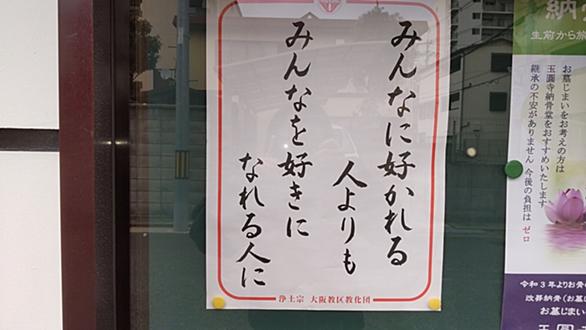 みんなに好かれる
人よりも
みんなを好きに
なれる人に
浄土宗 大阪教区教化団
納
生前から旅
お墓じまいをお考えの方は
玉圓寺納骨堂をおすすめいたします
継承の不安がありません 今後の負担は ゼロ
令和3年よりお骨
改葬納骨(お墓じ
お墓じまい